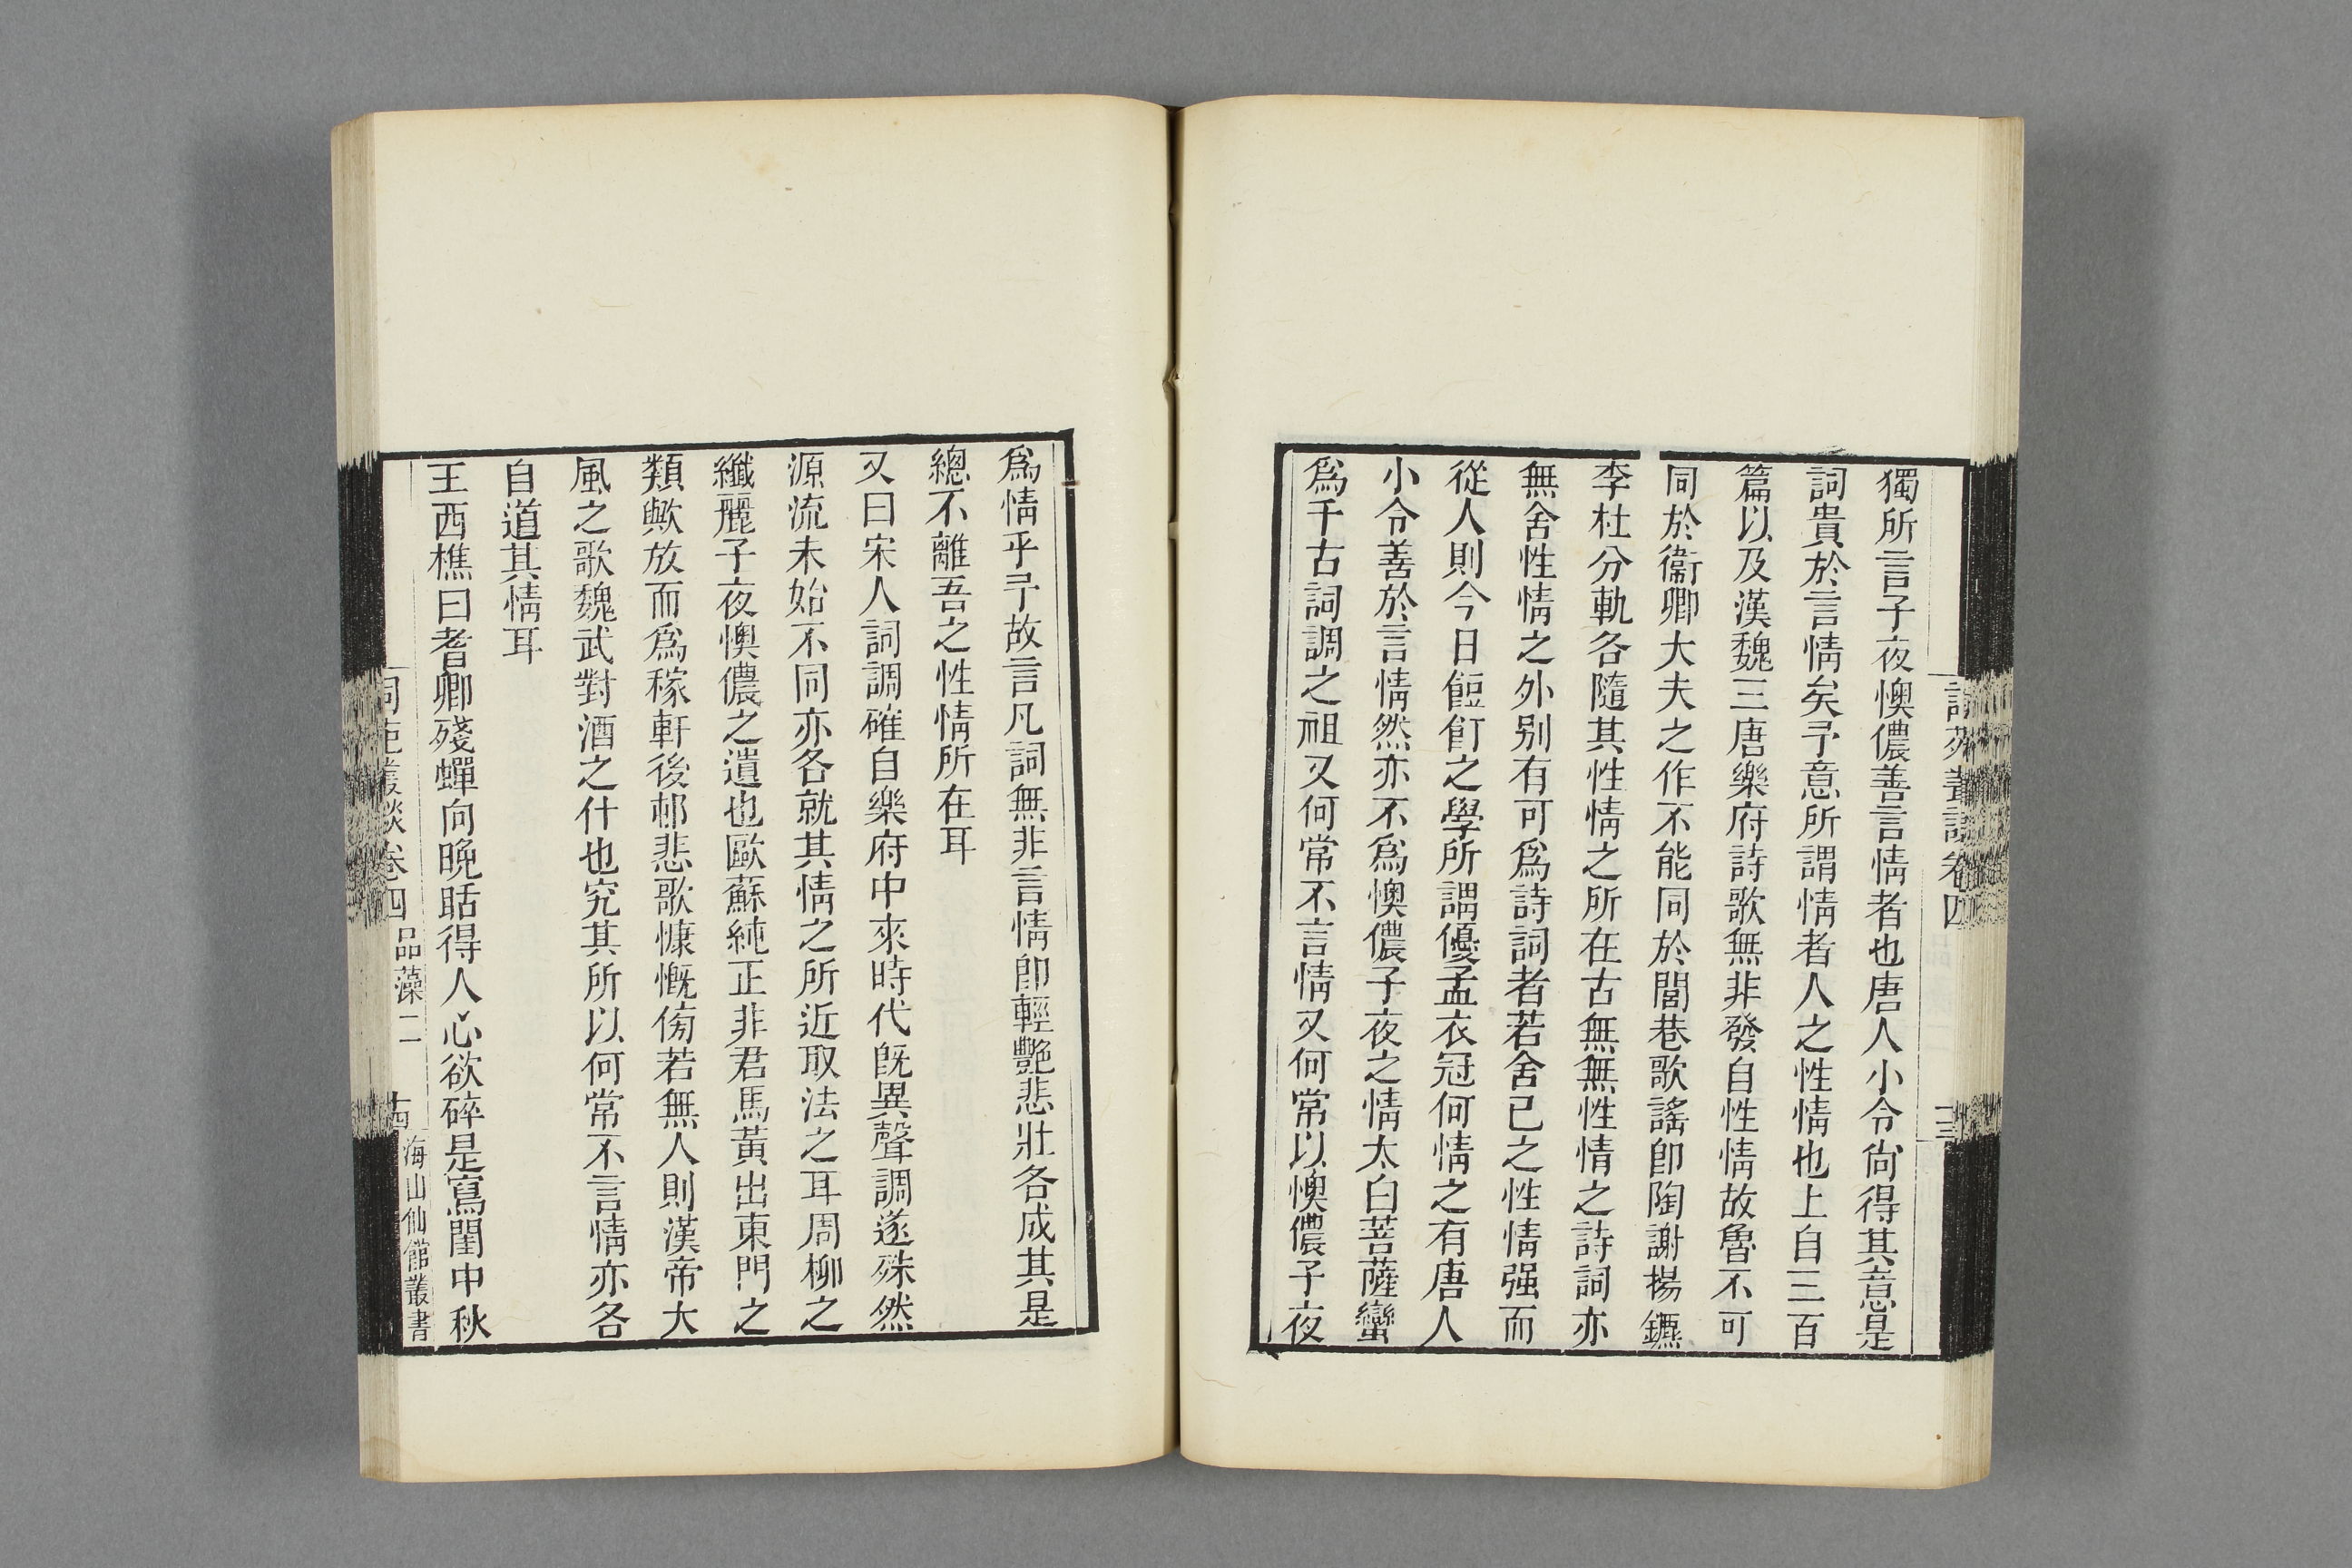 獨所言子夜懊儂善言情者也唐人小令尙得其意是
詞貴於言情矣予意所謂情者人之性情也上自三百
篇以及漢魏三唐樂府詩歌無非發自性情故魯不可
同於衞卿大夫之作不能同於閭巷歌謠卽陶謝揚鑣
李杜分軌各隨其性情之所在古無無性情之詩詞亦
無舍性情之外别有可爲詩詞者若舍己之性情强而
從人則今日餖飣之學所謂優孟衣冠何情之有唐人
小令善於言情然亦不爲懊儂子夜之情太白菩薩蠻
爲千古詞調之祖又何常不言情又何常以懊儂子夜
爲情乎予故言凡詞無非言情卽輕艷悲壯各成其是
總不離吾之性情所在耳
又曰宋人詞調確自樂府中來時代旣異聲調遂殊然
源流未始不同亦各就其情之所近取法之耳周柳之
纖麗子夜懊儂之遺也歐蘇純正非君馬黃出東門之
類歟放而爲稼軒後邨悲歌慷慨傍若無人則漢帝大
風之歌魏武對酒之什也究其所以何常不言情亦各
自道其情耳
王西樵曰耆卿殘蟬向晚聒得人心欲碎是寫閨中秋
詞苑叢談卷四 品藻二 十四 海山仙館叢書